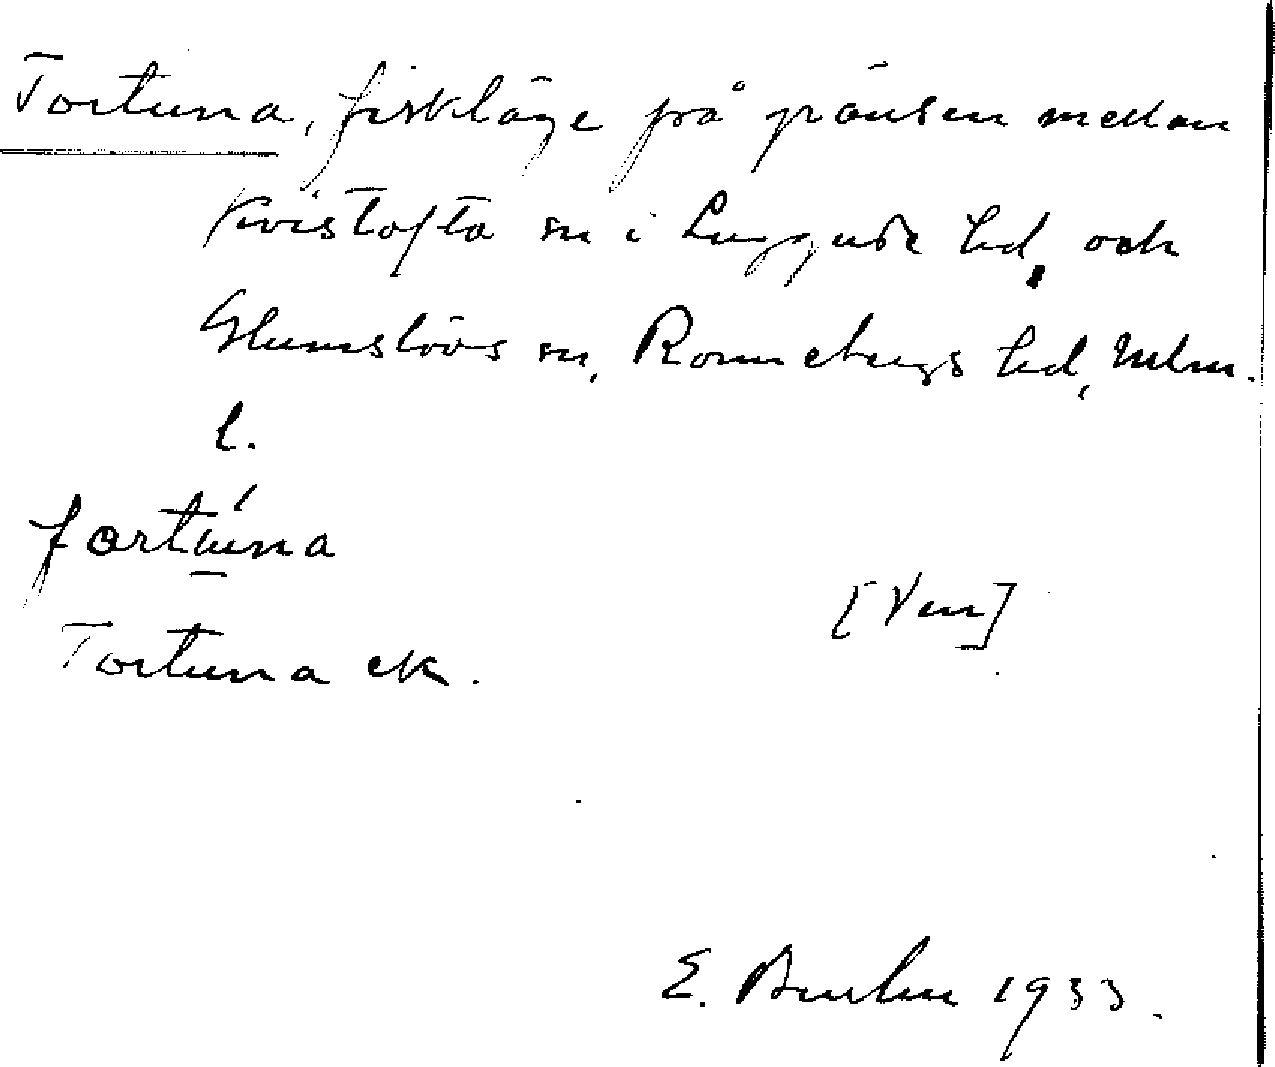 Tortuna, fiskläge på gränsen mellan
Kvistofta sn i Luggude hd, och
Glumslövs sn, Rönnebergs hd, Mlm.
l.
Tortuna ek.
[Ven]
E. 1933.